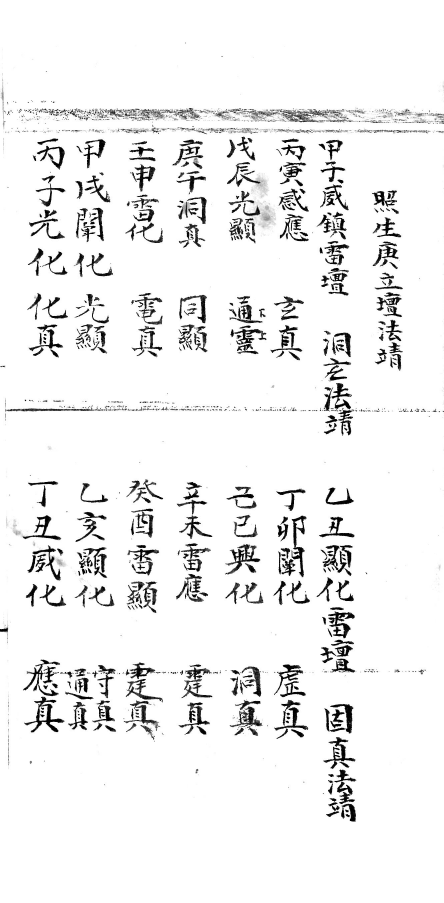 照生庚立壇法靖
甲子威鎮雷壇　洞玄法靖
丙寅感應　玄真
戊辰光顯　通靈 下上
庚午洞真　同顯
壬申雷化　電真
甲戌闡化　光顯
丙子光化　化真
乙丑顯化雷壇　固真法靖
丁卯闡化　虛真
己巳興化　洞真
辛未雷應　霆真
癸酉雷顯　霆真
乙亥顯化　守真 通真
丁丑威化　應真